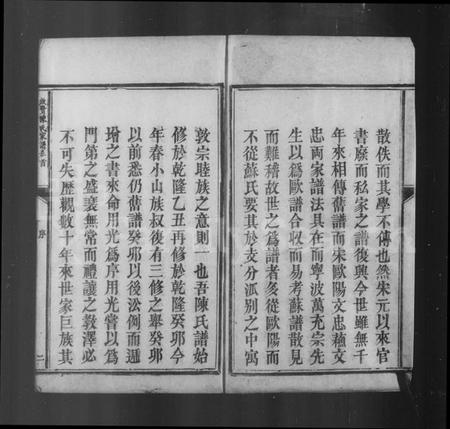 散佚而其學不傳也然朱元以來官
書廢而私家之譜復興今世雖無千
年來相傳舊譜而宋歐陽文忠蘓文
忠兩家譜法具在而寧波萬充宗先
生以爲歐譜合收而易考蘇譜散見
而難稽故世之爲譜者多從歐陽而
不從蘇氏要其於支分泒别之中寓
敦宗睦族之意則一也吾陳氏譜始
修於乾隆乙丑再修於乾隆癸丣今
年春小山族叔後有三修之舉癸丣
以前悉仍舊譜癸丣以後沿例而遞
増之書來命用光爲序用光嘗以爲
門第之盛衰無常而禮讓之敦澤必
不可失歷觀數十年來世家巨族其
陳氏家譜卷首
序
二